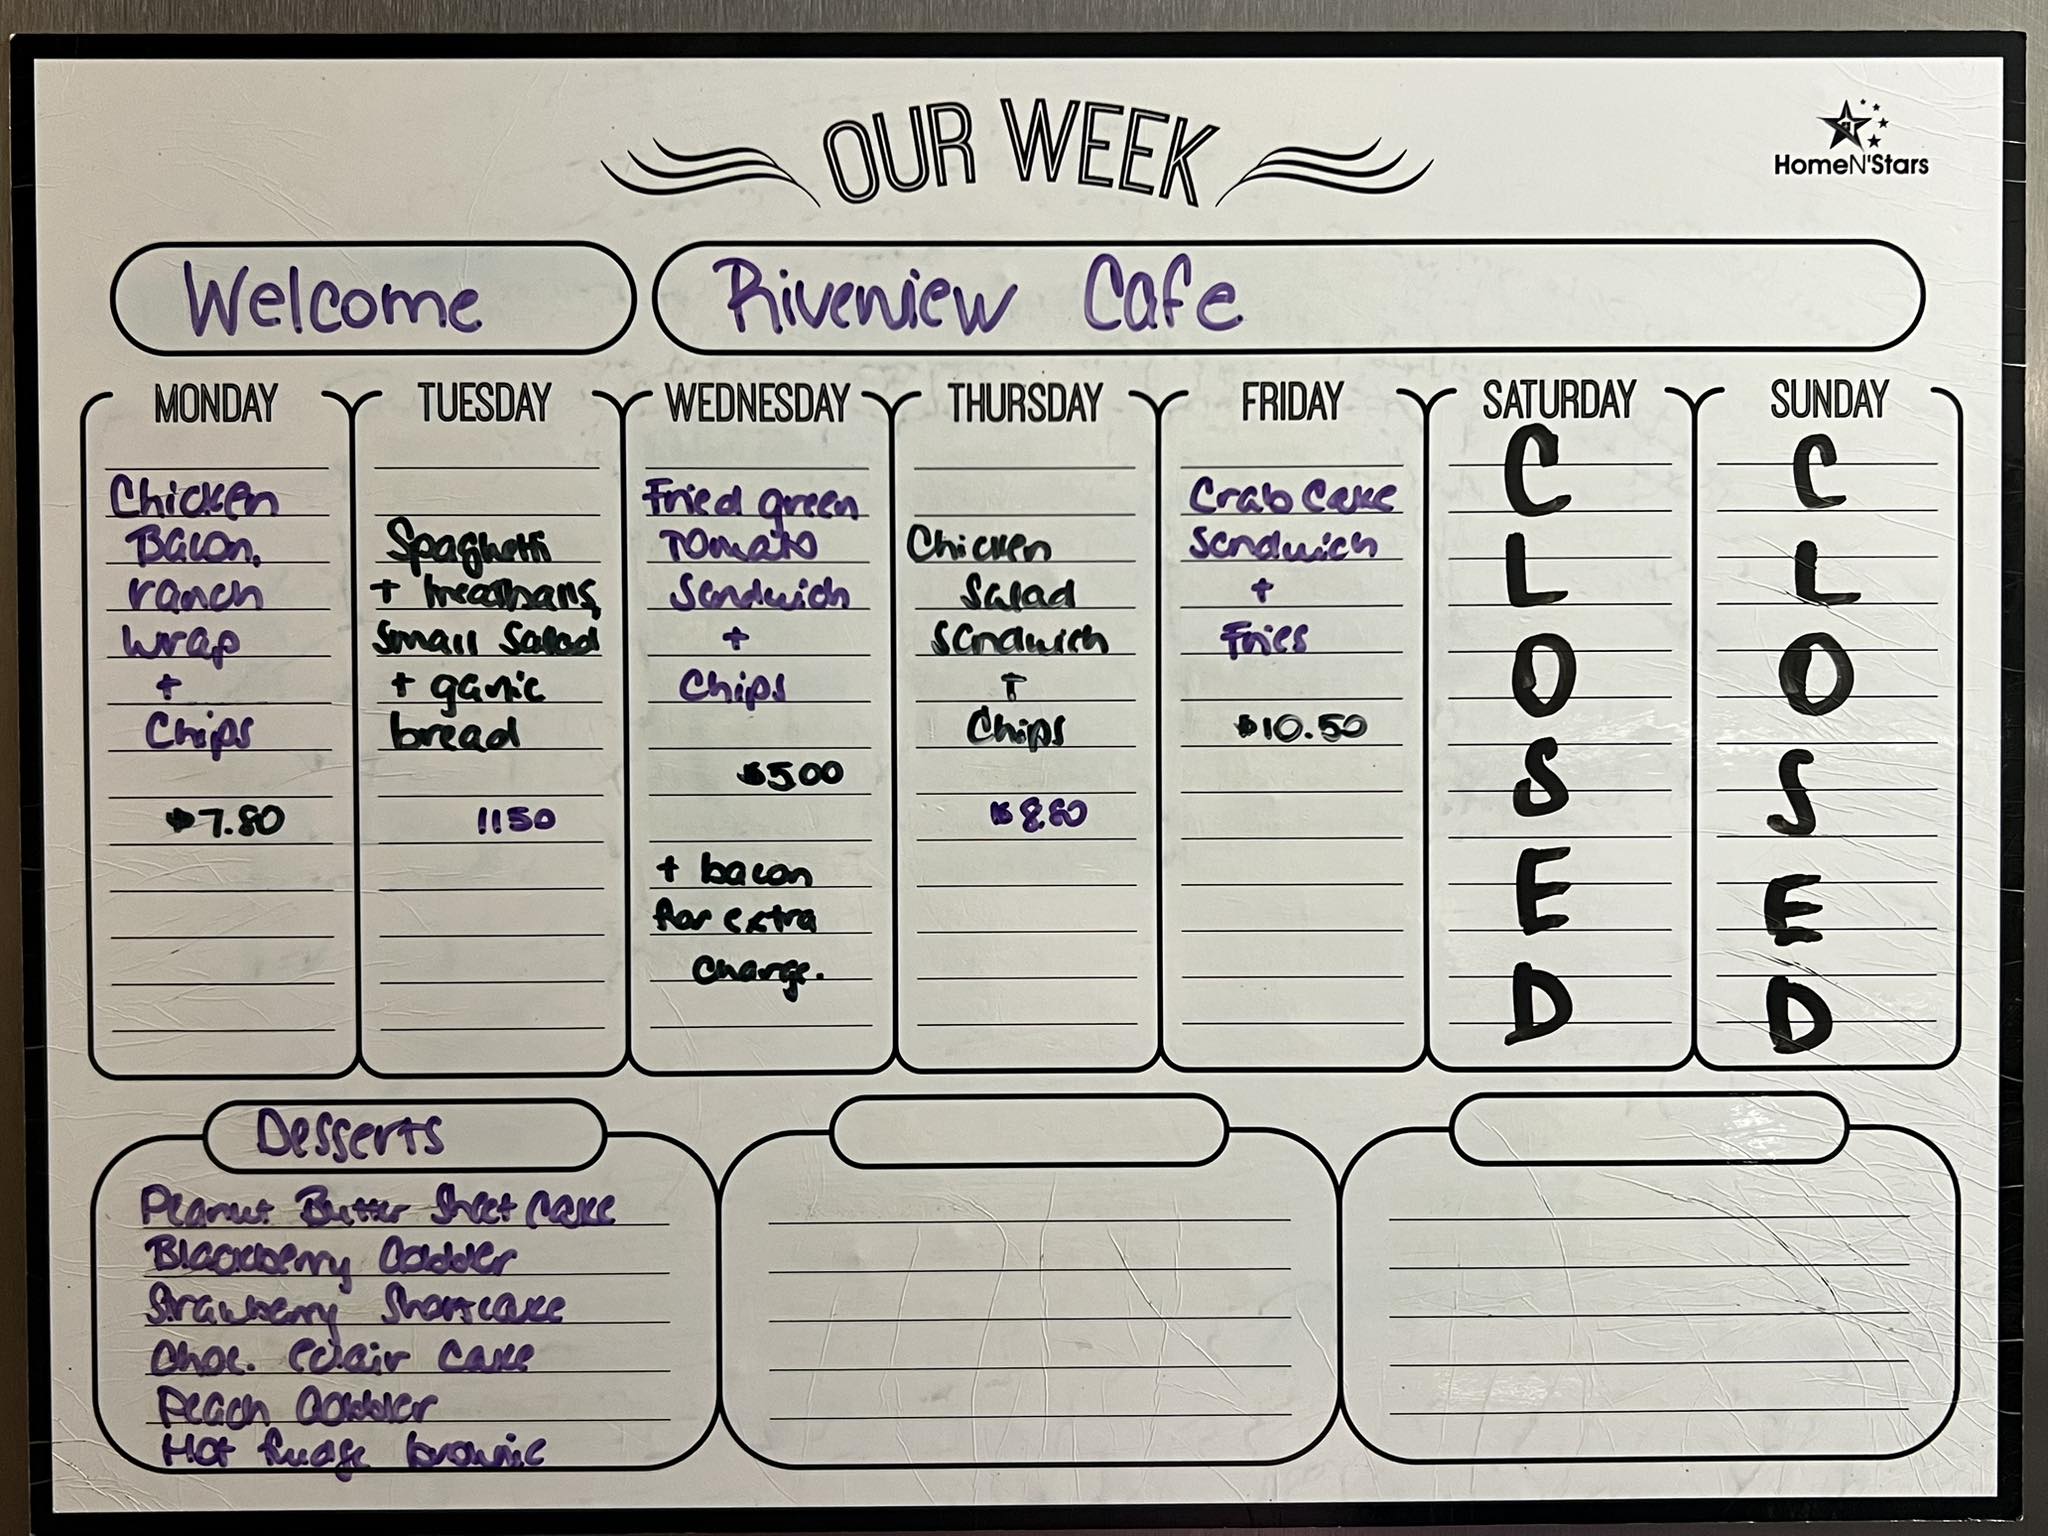 OUR WEEK
HomeN'Stars
Welcome
Riverview Cafe
MONDAY
Chicken
Bacon,
ranch
wrap
+
Chips
$7.80
TUESDAY
Spaghetti
+ meatballs,
Small Salad
+ garlic
bread
1150
WEDNESDAY
Fried green
Tomato
Sandwich
+
Chips
$5.00
+ bacon
for extra
Charge.
THURSDAY
Chicken
Salad
Sandwich
+
Chips
$8.80
FRIDAY
Crab Cake
Sandwich
+
Fries
$10.50
SATURDAY
C
L
O
S
E
D
SUNDAY
C
L
O
S
E
D
Desserts
Peanut Butter Sheet Cake
Blackberry Cobbler
Strawberry Shortcake
Choc. eclair Cake
Peach Cobbler
Hot fudge brownie